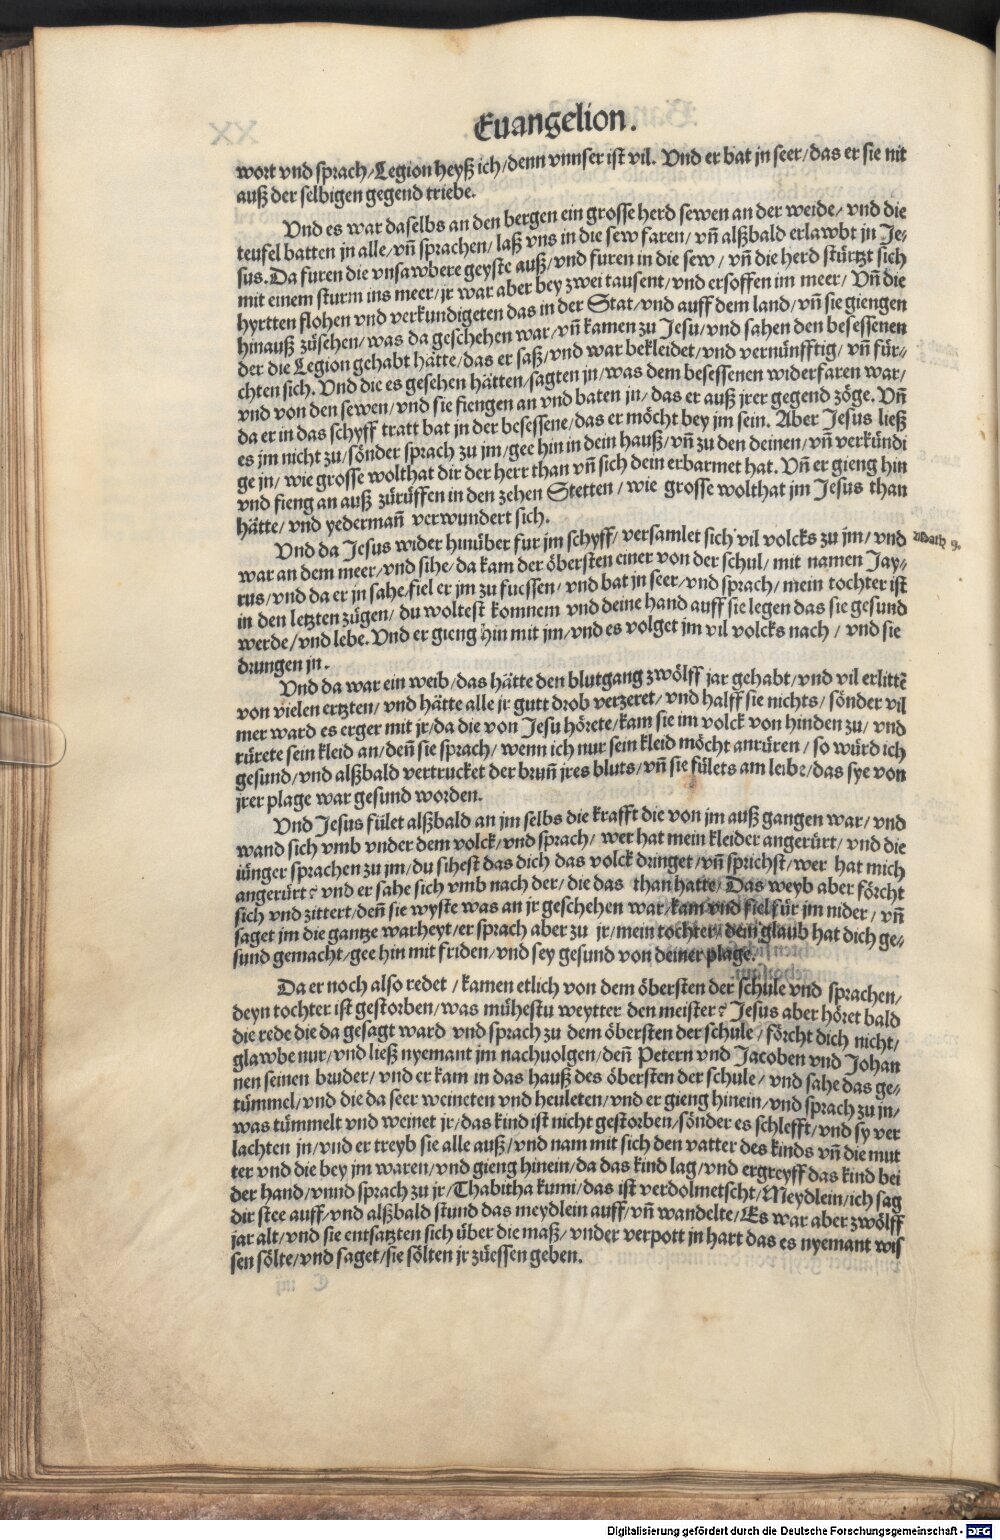 Euangelion.
wort vnd sprach/Legion heyß ich/denn vnnser ist vil. Vnd er bat jn seer/das er sie nit
auß der selbigen gegend triebe.
Vnd es war daselbs an den bergen ein grosse herd sewen an der weide/vnd die
teufel batten jn alle/vn̄ sprachen/laß vns in die sew faren/vn̄ alßbald erlawbt jn Je⸗
sus. Da furen die vnsawbere geyste auß/vnd furen in die sew/vn̄ die herd stürtzt sich
mit einem sturm ins meer/jr war aber bey zwei tausent/vnd ersoffen im meer/Vn̄ die
hyrtten flohen vnd verkundigeten das in der Stat/vnd auff dem land/vn̄ sie giengen
hinauß zůsehen/was da geschehen war/vn̄ kamen zu Jesu/vnd sahen den besessenen
der die Legion gehabt hätte/das er saß/vnd war bekleidet/vnd vernünfftig/vn̄ für⸗
chten sich. Vnd die es gesehen hätten/sagten jn/was dem besessenen widerfaren war/
vnd von den sewen/vnd sie fiengen an vnd baten jn/das er auß jrer gegend zöge. Vn̄
da er in das schyff tratt bat jn der besessene/das er möcht bey jm sein. Aber Jesus ließ
es jm nicht zu/sönder sprach zu jm/gee hin in dein hauß/vn̄ zu den deinen/vn̄ verkündi
ge jn/wie grosse wolthat dir der herr than vn̄ sich dein erbarmet hat. Vn̄ er gieng hin
vnd fieng an auß zůrůffen in den zehen Stetten/wie grosse wolthat jm Jesus than
hätte/vnd yederman̄ verwundert sich.
Vnd da Jesus wider hinüber fur jm schyff/versamlet sich vil volcks zu jm/vnd
Math 9.
war an dem meer/vnd sihe/da kam der öbersten einer von der schul/mit namen Jay⸗
rus/vnd da er jn sahe/fiel er jm zu fuessen/vnd bat jn seer/vnd sprach/mein tochter ist
in den letzten zügen/du woltest komnem vnd deine hand auff sie legen das sie gesund
werde/vnd lebe. Vnd er gieng hin mit jm/vnd es volget jm vil volcks nach/vnd sie
drungen jn.
Vnd da war ein weib/das hätte den blutgang zwölff jar gehabt/vnd vil erlittē
von vielen ertzten/vnd hätte alle jr gutt drob verzeret/vnd halff sie nichts/sönder vil
mer ward es erger mit jr/da die von Jesu hörete/kam sie im volck von hinden zu/vnd
rürete sein kleid an/den̄ sie sprach/wenn ich nur sein kleid möcht anrüren/so würd ich
gesund/vnd alßbald vertrucket der brun̄ jres bluts/vn̄ sie fülets am leibe/das sye von
jrer plage war gesund worden.
Vnd Jesus fület alßbald an jm selbs die krafft die von jm auß gangen war/vnd
wand sich vmb vnder dem volck/vnd sprach/wer hat mein kleider angerürt/vnd die
iünger sprachen zu jm/du sihest das dich das volck dringet/vn̄ sprichst/wer hat mich
angerürt? vnd er sahe sich vmb nach der/die das than hatte/Das weyb aber förcht
sich vnd zittert/den̄ sie wyste was an jr geschehen war/kam vnd fiel für jm nider/vn̄
saget jm die gantze warheyt/er sprach aber zu jr/mein tochter/dein glaub hat dich ge⸗
sund gemacht/gee hin mit friden/vnd sey gesund von deiner plage.
Da er noch also redet/kamen etlich von dem öbersten der schule vnd sprachen/
deyn tochter ist gestorben/was mühestu weytter den meister? Jesus aber höret bald
die rede die da gesagt ward vnd sprach zu dem öbersten der schule/förcht dich nicht/
glawbe nur/vnd ließ nyemant jm nachuolgen/den̄ Petern vnd Jacoben vnd Johan
nen seinen bruder/vnd er kam in das hauß des öbersten der schule/vnd sahe das ge⸗
tümmel/vnd die da seer weineten vnd heuleten/vnd er gieng hinein/vnd sprach zu jn/
was tümmelt vnd weinet jr/das kind ist nicht gestorben/sönder es schlefft/vnd sy ver
lachten jn/vnd er treyb sie alle auß/vnd nam mit sich den vatter des kinds vn̄ die mut
ter vnd die bey jm waren/vnd gieng hinein/da das kind lag/vnd ergreyff das kind bei
der hand/vnnd sprach zu jr/Thabitha kumi/das ist verdolmetscht/Meydlein/ich sag
dir stee auff/vnd alßbald stund das meydlein auff/vn̄ wandelte/Es war aber zwölff
jar alt/vnd sie entsatzten sich über die maß/vnder verpott jn hart das es nyemant wis
sen sölte/vnd saget/sie sölten jr zůessen geben.
Digitalisierung gefördert durch die Deutsche Forschungsgemeinschaft - DFG